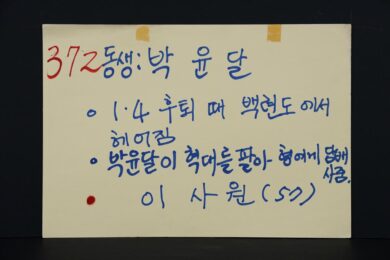 372 동생: 박 윤 달
• 1·4 후퇴 때 백현도에서
헤어짐
• 박윤달이 혁대를 팔아 형에게 담배
사줌.
• 이 사 원 (57)